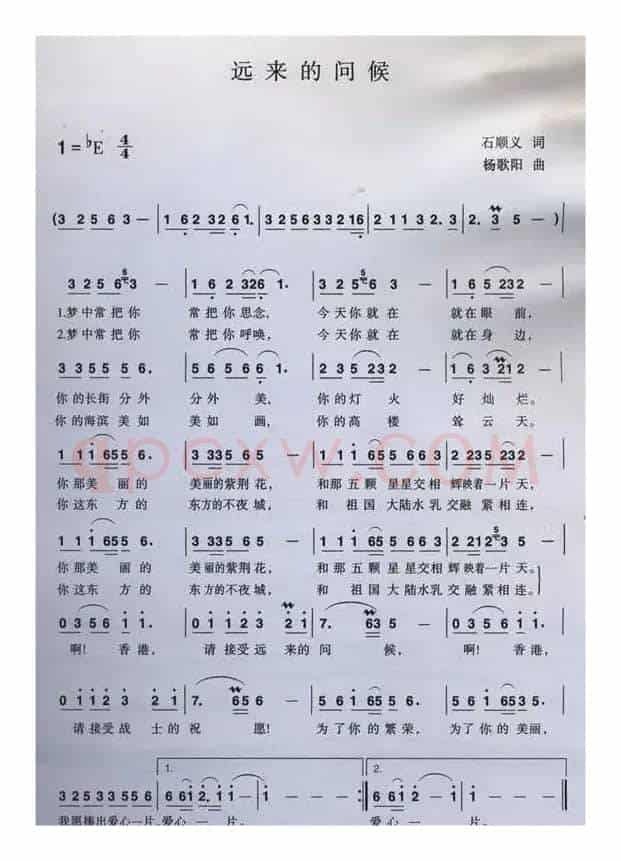 远来的问候
1=♭E 4/4
石顺义 词
杨歌阳 曲
(3 2 5 6 3 — | 1 6 2 3 2 6 1. | 3 2 5 6 3 3 2 1 6 | 2 1 1 3 2. 3 | 2. 3 5 — )
3 2 5 6 3 — | 1 6 2 3 2 6 1. | 3 2 5 6 6. | 1 6 5 2 3 2
1.梦中常把你 常把你思念, 今天你就在 就在眼前,
2.梦中常把你 常把你呼唤, 今天你就在 就在身边,
3 3 5 5 5 6. | 5 5 6 3 2 1. | 2 3 5 2 3 2 | 1 6 3 2 1 2
你的长街分外 分外 美, 你的灯火 好灿烂。
你的海滨美如 美如 画, 你的高楼 耸云天。
qpcxw.COM
你那美 丽的 美丽的紫荆花, 和那五颗 星星交相 辉映着一片天,
你这东 方的 东方的不夜城, 和 祖国 大陆水乳 交融 紧相连,
你那美 丽的 美丽的紫荆花, 和那五颗 星星交相 辉映着一片天。
你这东 方的 东方的不夜城, 和 祖国 大陆水乳 交融 紧相连。
0 3 5 6 1. | 0 1 1 1 3 2 1 | 7. 6 3 5 — | 0 3 5 6 1.
啊! 香港, 请接受远来的问 候, 啊! 香港,
0 1 1 1 2 1 | 7. 6 5 6 — | 5 6 1 6 5 5. | 5 6 1 6 5 3 5.
请接受战 士的祝 愿! 为了你的繁荣, 为了你的美丽,
1.
2.
3 2 5 3 3 5 2 2
我愿捧出爱心一片。爱心 一 片。 爱心 一 片。